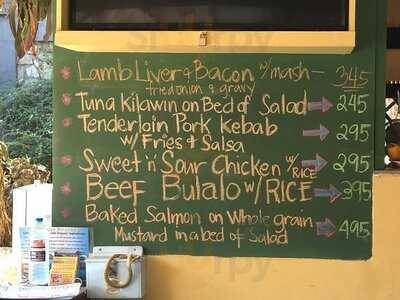 Lamb Liver & Bacon w/ mash — 345
fried onion & gravy
Tuna Kilawin on Bed of Salad 245
Tenderloin Pork Kebab 295
w/ Fries & Salsa
Sweet 'n' Sour Chicken w/ RICE 295
Beef Bulalo w/ RICE 395
Baked Salmon on Whole grain 495
Mustard in a bed of Salad